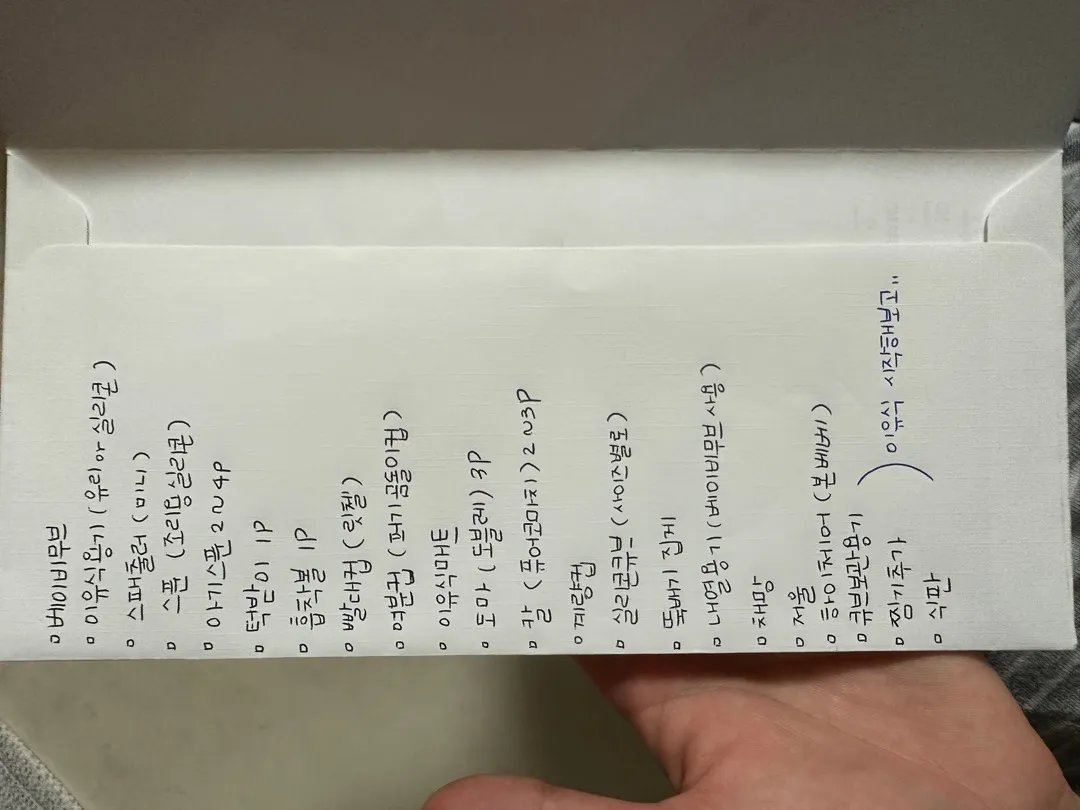 ▫ 베이비무브
▫ 이유식용기 (유리아 실리콘)
▫ 스패츌러 (미니)
▫ 스푼 (조리용실리콘)
▫ 아기스푼 2~4P
▫ 턱받이 1P
▫ 흡착볼 1P
▫ 빨대컵 (릿첼)
▫ 연분컵 (퍼기 곰돌이컵)
▫ 이유식매트
▫ 도마 (도블레) 3P
▫ 칼 (퓨어코마치) 2~3P
▫ 계량컵
▫ 실리콘큐브 (사이즈별로)
▫ 뚝배기 집게
▫ 내열용기 (베이비무브사용)
▫ 채망
▫ 저울
▫ 하이체어 (본베베)
▫ 큐브보관용기
▫ 찜기추가
▫ 식판
) 이유식 시작해보고..